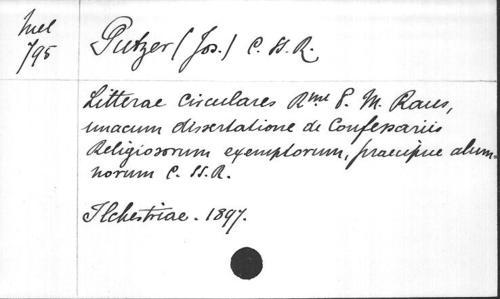 Mel
795
Putzer (Jos.) C. SS. R.
Litterae circulares Rme P. M. Raus,
unacum dissertatione de Confessariis
Religiosorum exemptorum, praecipue alum-
norum C. SS. R.
Ilchestriae. 1897.